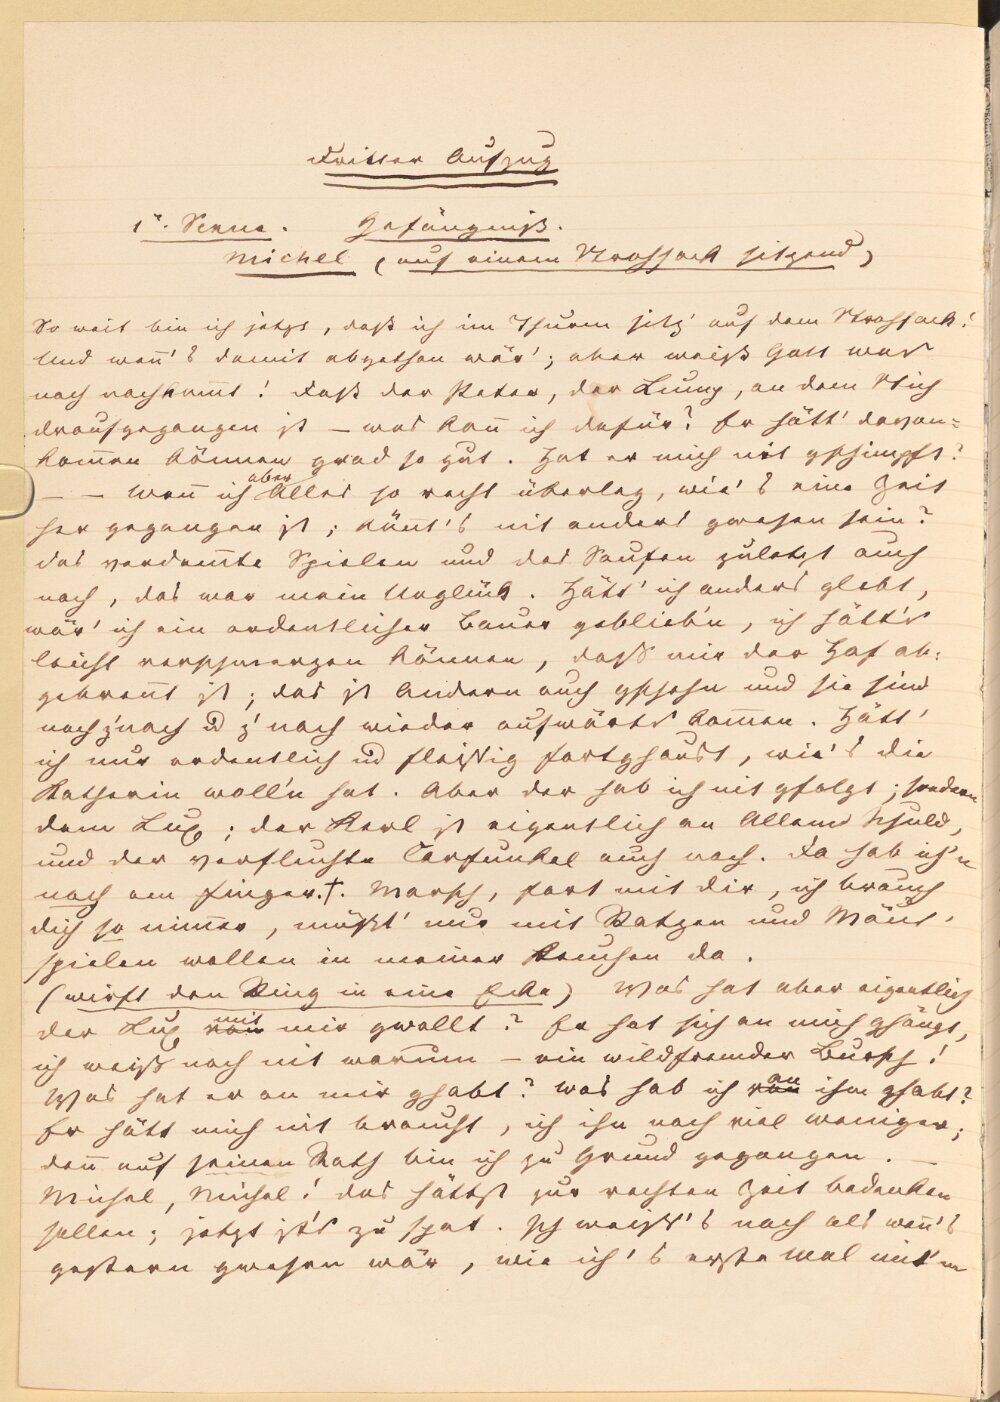 Dritter Aufzug
1e. Scene. Gefängniß.
Michel (auf einem Strohsack sitzend)
So weit bin ich jetzt, daß ich im Thurm sitz' auf dem Strohsack!
Und wen̄'s damit abgethan wär'; aber weiß Gott was
noch nachkom̄t! Daß der Peter, der Lump, an dem Stich
draufgegangen ist – was kan̄ ich dafür? Er hätt' davon=
kom̄en können grad so gut. Hat er mich nit gschimpft?
– – Wen̄ ich aber Alles so recht überleg, wie's eine Zeit
her gegangen ist; kön̄t's nit anders gwesen sein?
das verdam̄te Spielen und das Saufen zuletzt auch
noch, das war mein Unglück. Hätt' ich anders glebt,
wär' ich ein ordentlicher Bauer geblieb'n, ich hätt's
leicht verschmerzen können, daß mir der Hof ab=
gebran̄t ist; das ist Andern auch gschehn und sie sind
nach z'nach ūd z'nach wieder aufwärts kom̄en. Hätt'
ich nur ordentlich ūd fleißig fortghaust, wie's die
Katherin woll'n hat. Aber der hab ich nit gfolgt; sondern
dem Lux; der Kerl ist eigentlich an Allem Schuld,
und der verfluchte Carfunkel auch noch. Da hab ich'n
noch am Finger.†. Marsch, fort mit dir, ich brauch
dich so nim̄er, müßt' nur mit Ratzen und Mäus'
spielen wollen in meiner Keuchen da.
(wirft den Ring in eine Ecke) Was hat aber eigentlich
der Lux von mit mir gwollt? Er hat sich an mich ghängt,
ich weiß noch nit warum – ein wildfremder Bursch!
Was hat er an mir ghabt? was hab ich von an ihm ghabt?
Er hätt mich nit braucht, ich ihn noch viel weniger;
den̄ auf seinen Rath bin ich zu Grund gegangen. –
Michel, Michel! das hättst zur rechten Zeit bedenken
sollen; jetzt ist's zu spat. Ich weiß's noch als wen̄'s
gestern gwesen wär, wie ich's erste Mal mit'm